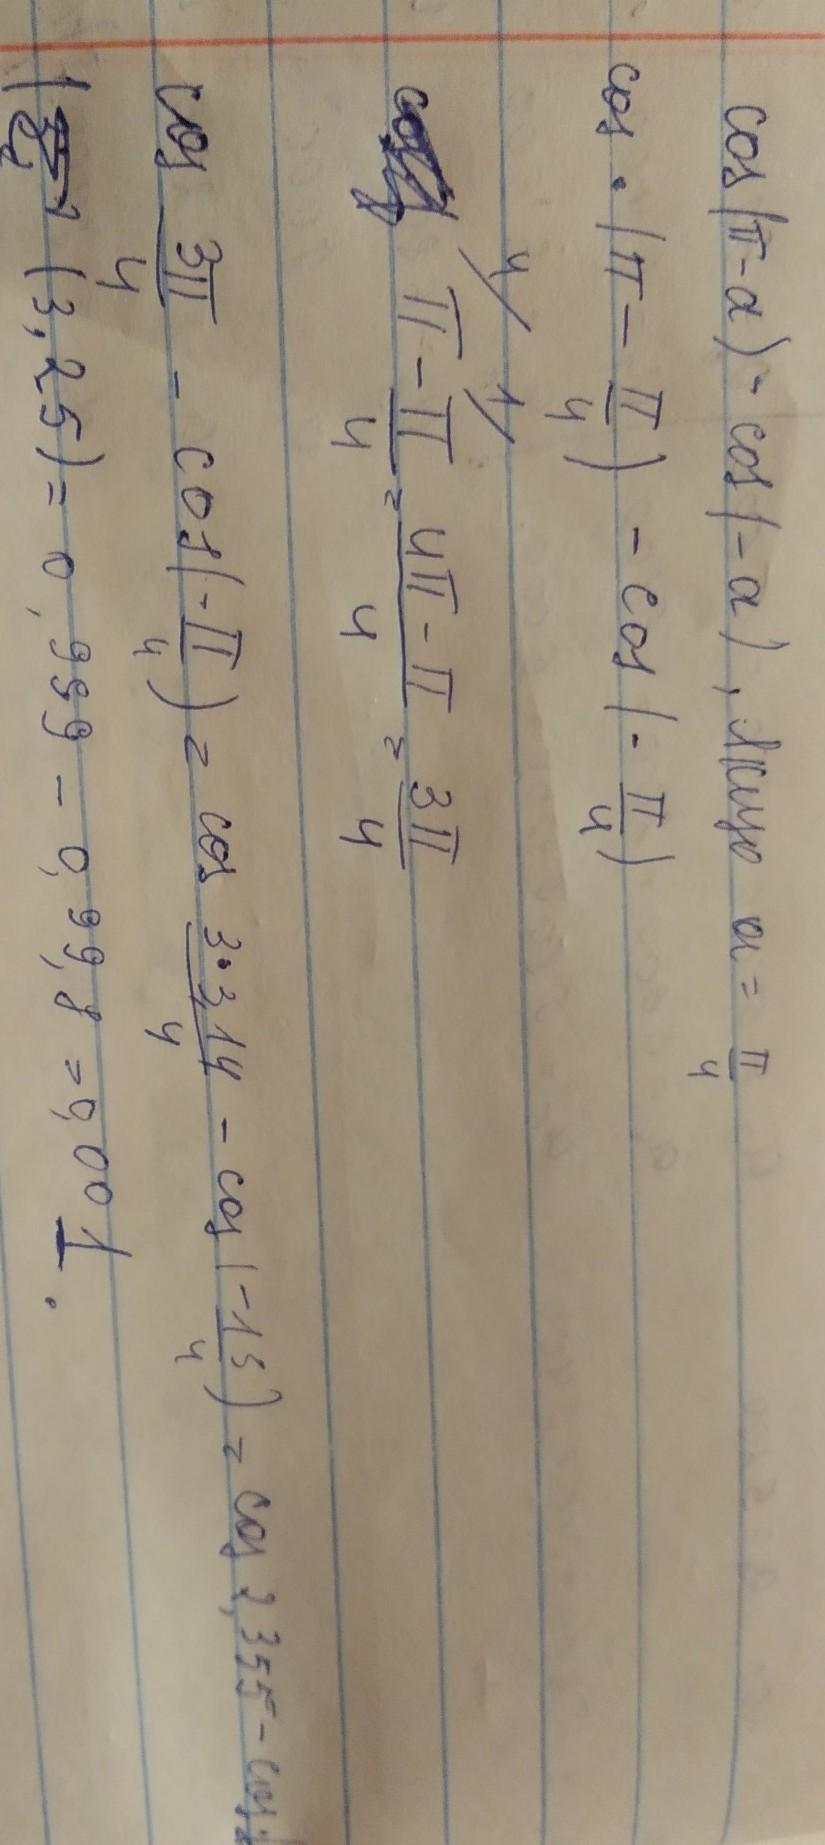 cos(π-α) - cos(-α), якщо α = π/4
cos · (π - π/4) - cos(-π/4)
π - π/4 = 4π - π/4 = 3π/4
cos 3π/4 - cos(-π/4) = cos 3·3,14/4 - cos(-13/4) = cos 2,355 - cos
(3,25) = 0,999 - 0,998 = 0,001.